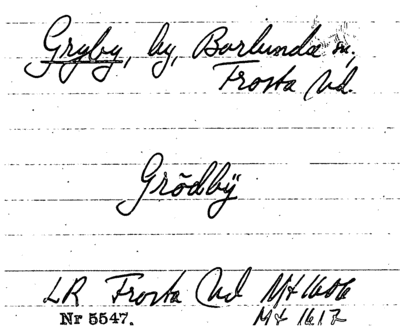 Gryby, by, Borlunda sn,
Frosta hd.
Grödbÿ
LR Frosta hd Mt 1606
Nr 5547. Mt 1617